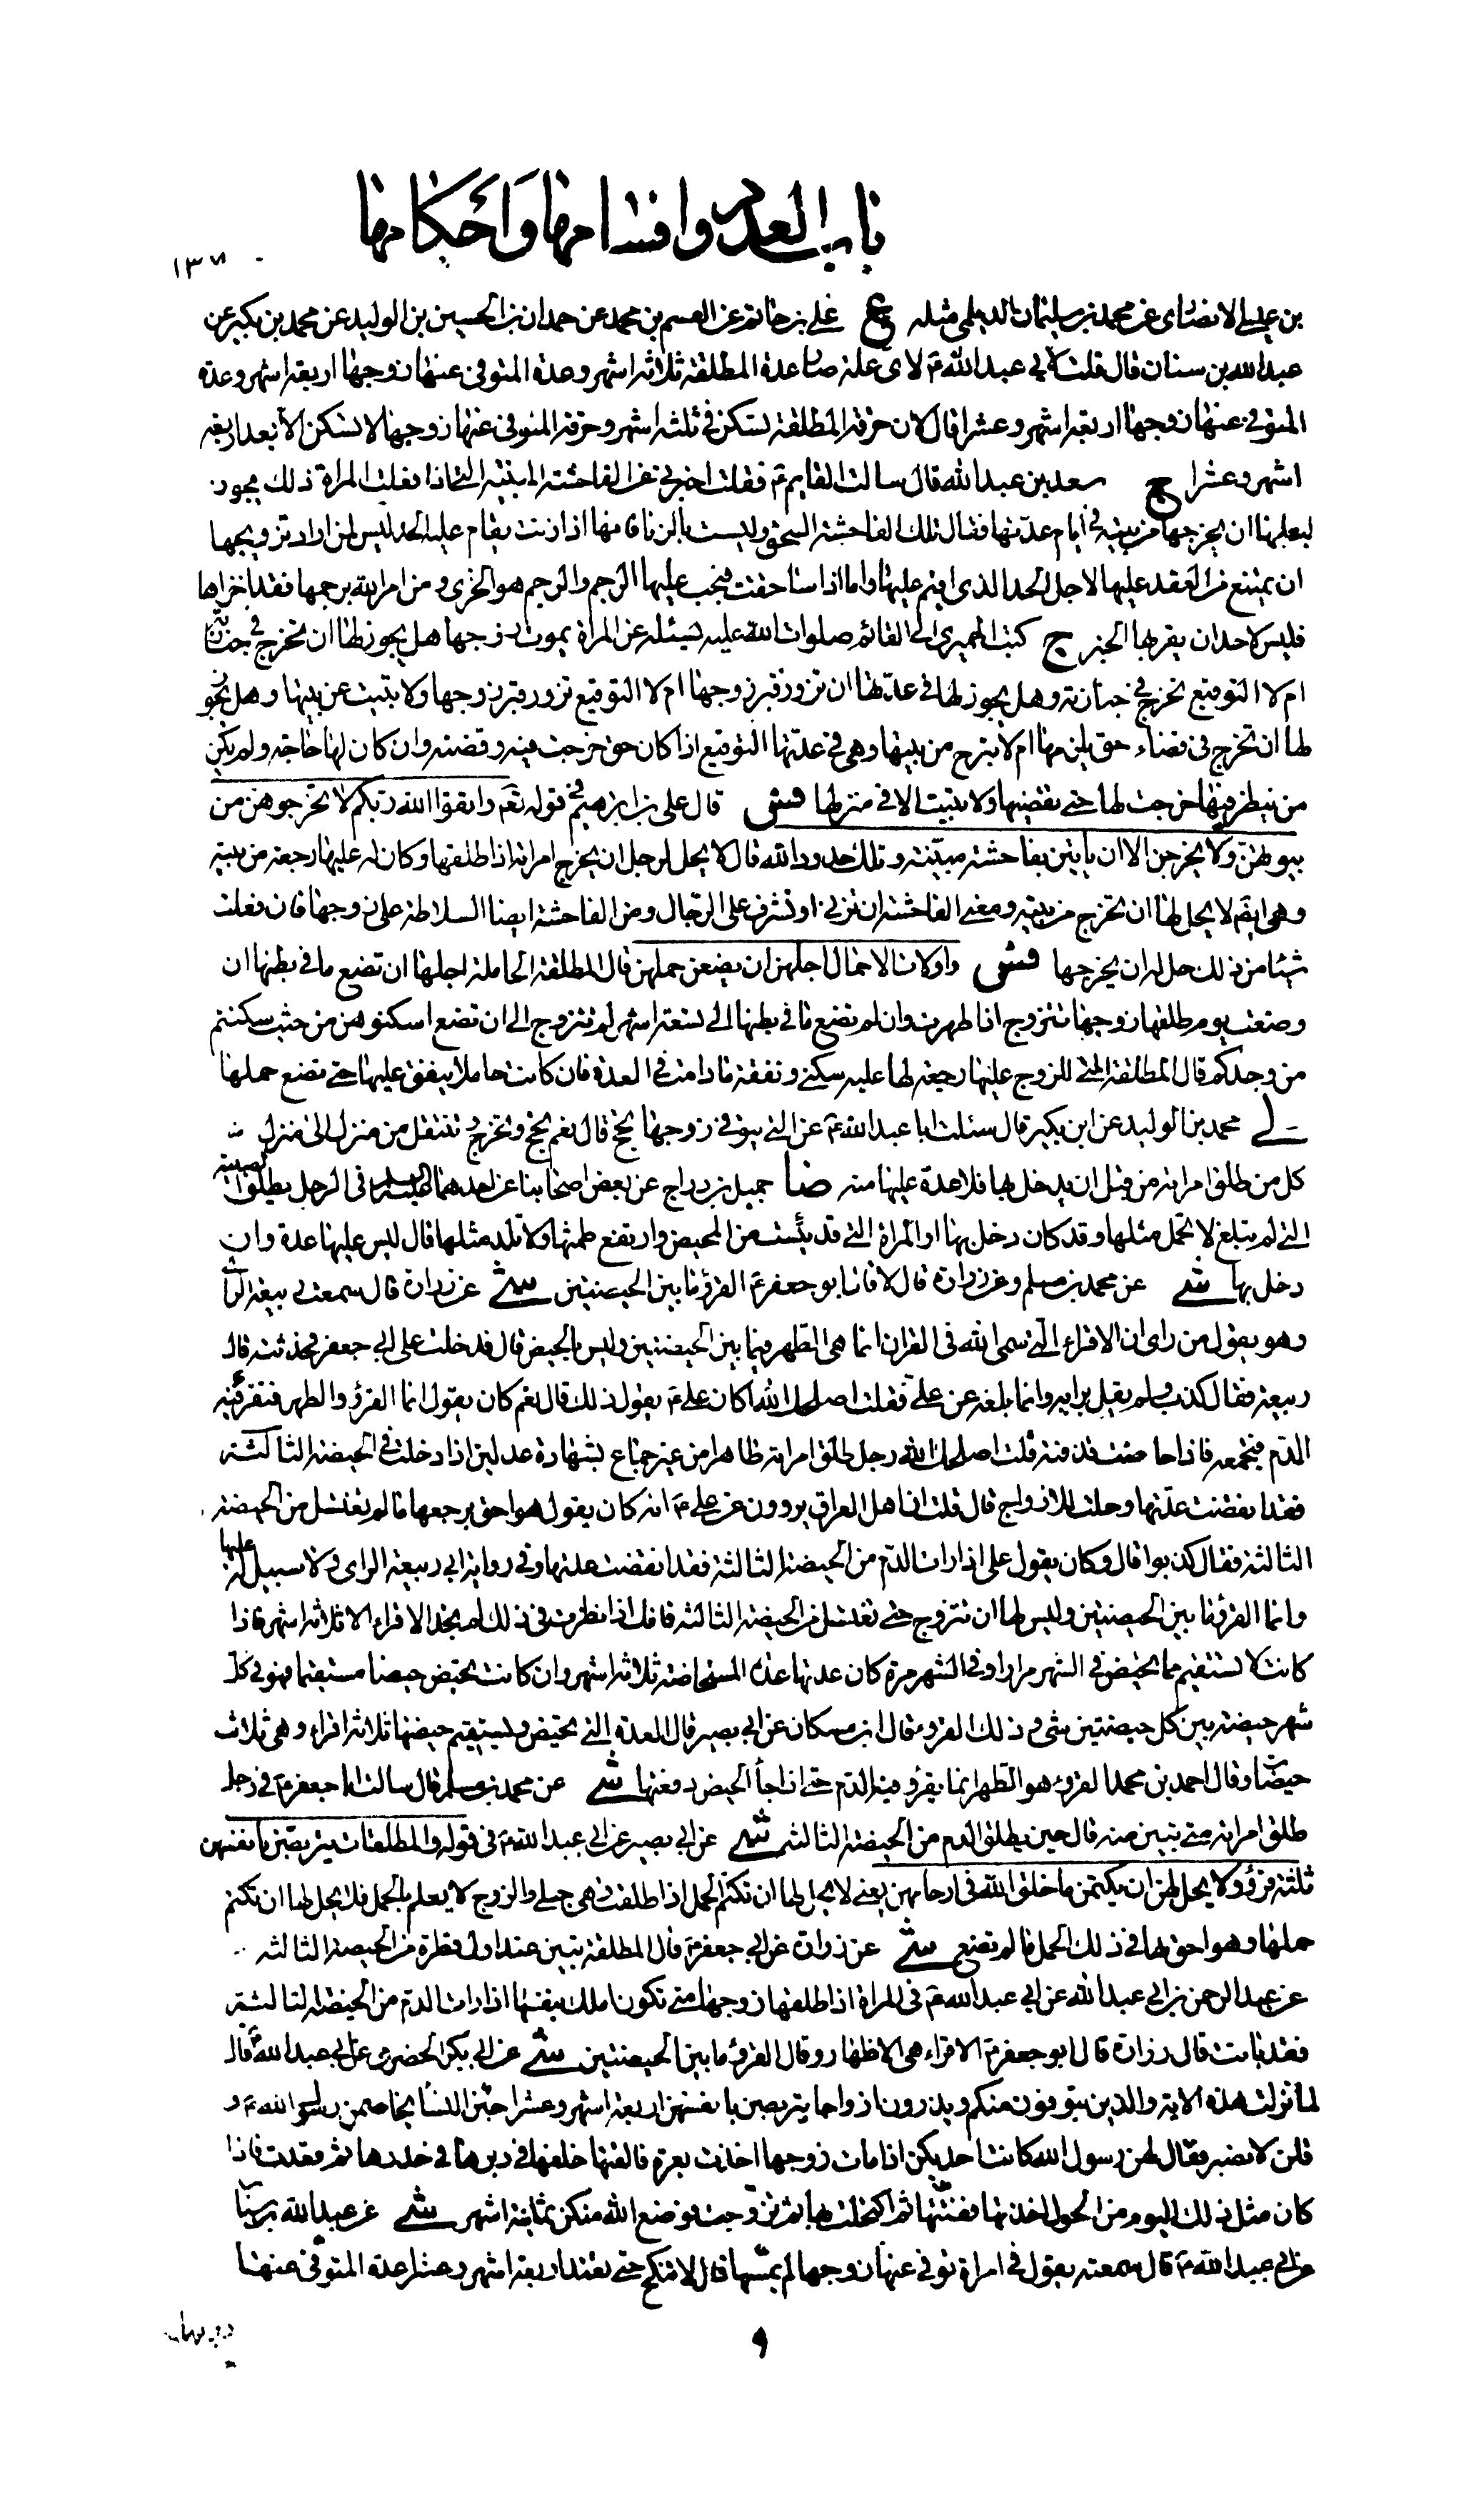 باب العدد واقسامها واحكامها
١٣٧
بن عيسى الانصارى عن محمد بن سليمان الديلمى مثله ع على بن حاتم عن القسم بن محمد عن حمدان بن الحسين بن الوليد عن محمد بن بكير عن
عبد الله بن سنان قال قلت لابي عبد الله ع لاى علة صار عدة المطلقة ثلاثة اشهر وعدة المتوفى عنها زوجها اربعة اشهر وعدة
المتوفى عنها زوجها اربعة اشهر وعشرا قال لان حرقة المطلقة تسكن فى ثلثة اشهر وحرقة المتوفى عنها زوجها لا تسكن الا بعد اربعة
اشهر وعشرا ج سعد بن عبد الله قال سالت القايم ع فقلت اخبرنى عن الفاحشة المبينة التى اذا فعلت المراة ذلك يجوز
لبعلها ان يخرجها من بيته فى ايام عدتها فقال تلك الفاحشة السحق وليست بالزنا فانها اذا زنت يقام عليها الحد ليس لمن اراد تزويجها
ان يمتنع من العقد عليها لاجل الحد الذى اقيم عليها واما اذا ساحقت فيجب عليها الرجم والرجم هو الخزى ومن امر الله برجمها فقد اخزاها
فليس لاحد ان يقربها الخبر ج كتب الحميرى الى القائم صلوات الله عليه يسئله عن المراة يموت زوجها هل يجوز لها ان تخرج فى جنازته
ام لا التوقيع تخرج فى جنازته وهل يجوز لها فى عدتها ان تزور قبر زوجها ام لا التوقيع تزور قبر زوجها ولا تبيت عن بيتها وهل يجوز
لها ان تخرج فى قضاء حق يلزمها ام لا تبرح من بيتها وهى فى عدتها التوقيع اذا كان حق خرجت فيه وقضته وان كان لها حاجة ولم يكن
من ينظر فيها خرجت لها حتى تقضيها ولا تبيت الا فى منزلها فس قال على بن ابرهيم فى قوله تع واتقوا الله ربكم لا تخرجوهن من
بيوتهن ولا يخرجن الا ان ياتين بفاحشة مبينة وتلك حدود الله قال لا يحل لرجل ان يخرج امراته اذا طلقها وكان له عليها رجعة من بيته
وهى ايضم لا يحل لها ان تخرج من بيته ومعنى الفاحشة ان تزنى او تشرف على الرجال ومن الفاحشة ايضا السلاطة على زوجها فان فعلت
شيئا من ذلك حل له ان يخرجها فس واولات الاحمال اجلهن ان يضعن حملهن قال المطلقة الحاملة اجلها ان تضع ما فى بطنها ان
وضعت يوم طلقها زوجها تتزوج اذا طهرت وان لم تضع ما فى بطنها الى تسعة اشهر لم تتزوج الى ان تضع اسكنوهن من حيث سكنتم
من وجدكم قال المطلقة التى للزوج عليها رجعة لها عليه سكنى ونفقة ما دامت فى العدة فان كانت حاملا ينفق عليها حتى تضع حملها
محمد بن الوليد عن ابن بكير قال سئلت ابا عبد الله ع عن التى يتوفى زوجها تحج قال نعم تحج وتخرج وتنتقل من منزل الى منزل
كل من طلق امراته من قبل ان يدخل بها فلا عدة عليها منه ضا جميل بن دراج عن بعض اصحابنا عن احدهما عليهما السلم فى الرجل يطلق الصبية
التى لم تبلغ لا تحمل مثلها وقد كان دخل بها او المراة التى قد يئست من المحيض وارتفع طمثها ولا تلد مثلها قال ليس عليها عدة وان
دخل بها شى عن محمد بن مسلم وعن زرارة قالا قال ابو جعفر ع القرؤ ما بين الحيضتين شى عن زرارة قال سمعت ربيعة الراى
وهو يقول من راى ان الاقراء التى سمى الله فى القران انما هى الطهر فيما بين الحيضتين وليس بالحيض قال فدخلت على ابي جعفر فحدثته قال
ربيعة فقال كذب ولم يقل برايه وانما بلغه عن على ع فقلت اصلحك الله اكان على ع يقول ذلك قال نعم كان يقول انما القرؤ الطهر فتقرؤ فيه
الدم فيجمعه فاذا حاضت قذفته قلت اصلحك الله رجل طلق امراته طاهرا من غير جماع بشهادة عدلين اذا دخلت فى الحيضة الثالثة
فقد انقضت عدتها وحلت للازواج قال قلت ان اهل العراق يروون عن على ع انه كان يقول هو احق برجعتها ما لم تغتسل من الحيضة
الثالثة فقال كذبوا قال وكان يقول على اذا رات الدم من الحيضة الثالثة فقد انقضت عدتها وفى رواية ابي ربيعة الراى ولا سبيل له عليها
وانما القرؤ ما بين الحيضتين وليس لها ان تتزوج حتى تغتسل من الحيضة الثالثة فانك اذا نظرت فى ذلك لم تجد الاقراء الا ثلاثة اشهر فاذا
كانت لا تستقيم مما تحيض فى الشهر مرارا وفى الشهر مرة كان عدتها عدة المستحاضة ثلاثة اشهر وان كانت تحيض حيضا مستقيما فهو فى كل
شهر حيضة بين كل حيضتين شهر وذلك القرؤ قال ابن مسكان عن ابي بصير قال العدة التى تحيض ويستقيم حيضها ثلاثة اقراء وهى ثلاث
حيضات وقال احمد بن محمد القرؤ هو الطهر انما يقرؤ فيه الدم حتى اذا جا الحيض دفعها شى عن محمد بن مسلم قال سالت ابا جعفر ع فى رجل
طلق امراته متى تبين منه قال حين يطلق الدم من الحيضة الثالثة شى عن ابي بصير عن ابي عبد الله ع فى قوله والمطلقات يتربصن بانفسهن
ثلثة قرؤ ولا يحل لهن ان يكتمن ما خلق الله فى ارحامهن يعنى لا يحل لها ان تكتم الحمل اذا طلقت وهى حبلى والزوج لا يعلم بالحمل فلا يحل لها ان تكتم
حملها وهو احق بها فى ذلك الحمل ما لم تضع شى عن زرارة عن ابي جعفر ع قال المطلقة تبين عند اول قطرة من الحيضة الثالثة
عن عبد الرحمن بن ابي عبد الله عن ابي عبد الله ع فى المراة اذا طلقها زوجها متى تكون املك بنفسها اذا رات الدم من الحيضة الثالثة
فقد بانت قال زرارة قال ابو جعفر ع الاقراء هى الاطهار وقال القرؤ ما بين الحيضتين شى عن ابي بكر الحضرمى عن ابي عبد الله ع قال
لما نزلت هذه الاية والذين يتوفون منكم ويذرون ازواجا يتربصن بانفسهن اربعة اشهر وعشرا جئن النسا يخاصمن رسول الله ص و
قلن لا نصبر فقال لهن رسول الله كانت احديكن اذا مات زوجها اخذت بعرة فالقتها خلفها فى دبرها فى خدرها ثم قعدت فاذا
كان مثل ذلك اليوم من الحول اخذتها ففتتها ثم اكتحلت بها ثم تزوجت فوضع الله منكن ثمانية اشهر شى عن عبد الله بن سنان
عن ابي عبد الله ع قال سمعته يقول فى امراة توفى عنها زوجها لم يمسها قال لا تنكح حتى تعتد اربعة اشهر وعشرا عدة المتوفى عنها